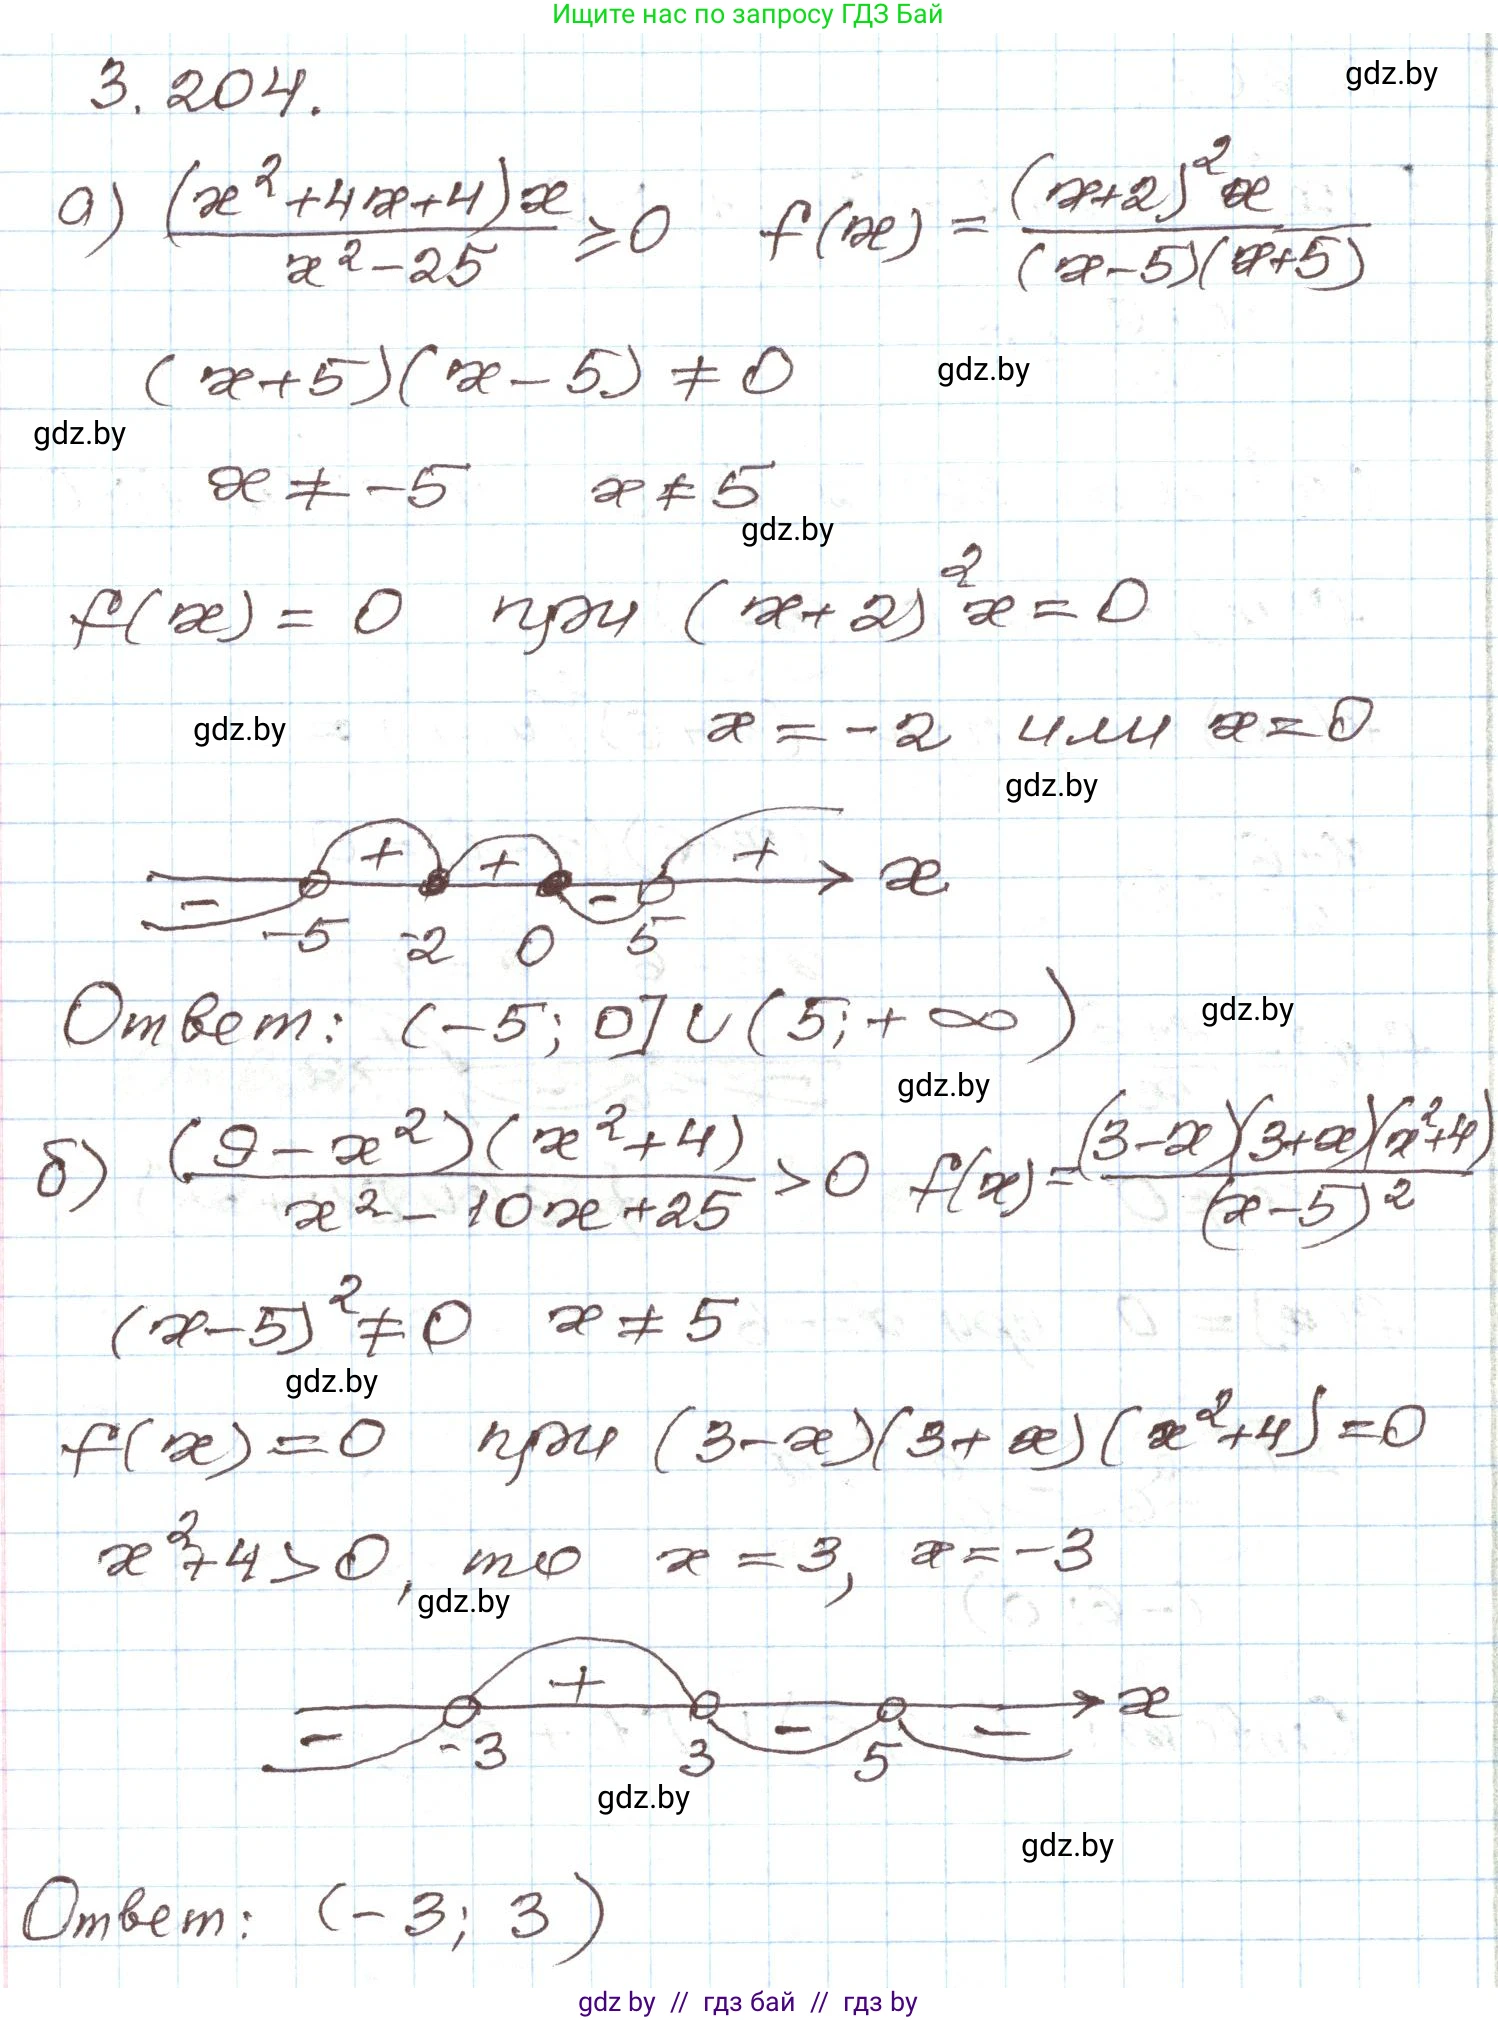 Ищите нас по запросу ГДЗ Бай
gdz.by
3.204.
а) (x²+4x+4)x / x²-25 ⩾0 f(x) = (x+2)²x / (x-5)(x+5)
(x+5)(x-5) ≠ 0
gdz.by
gdz.by
x ≠ -5 x ≠ 5
gdz.by
f(x) = 0 при (x+2)²x = 0
gdz.by
x = -2 или x = 0
gdz.by
+ + + x
- -
-5 -2 0 5
Ответ: (-5; 0] ∪ (5; +∞)
gdz.by
gdz.by
б) (9-x²)(x²+4) / x²-10x+25 >0 f(x) = (3-x)(3+x)(x²+4) / (x-5)²
(x-5)² ≠ 0 x ≠ 5
gdz.by
f(x) = 0 при (3-x)(3+x)(x²+4) = 0
x²+4>0, то x = 3, x = -3
gdz.by
+ x
- - -
-3 3 5
gdz.by
gdz.by
Ответ: (-3; 3)
gdz by // гдз бай // гдз by